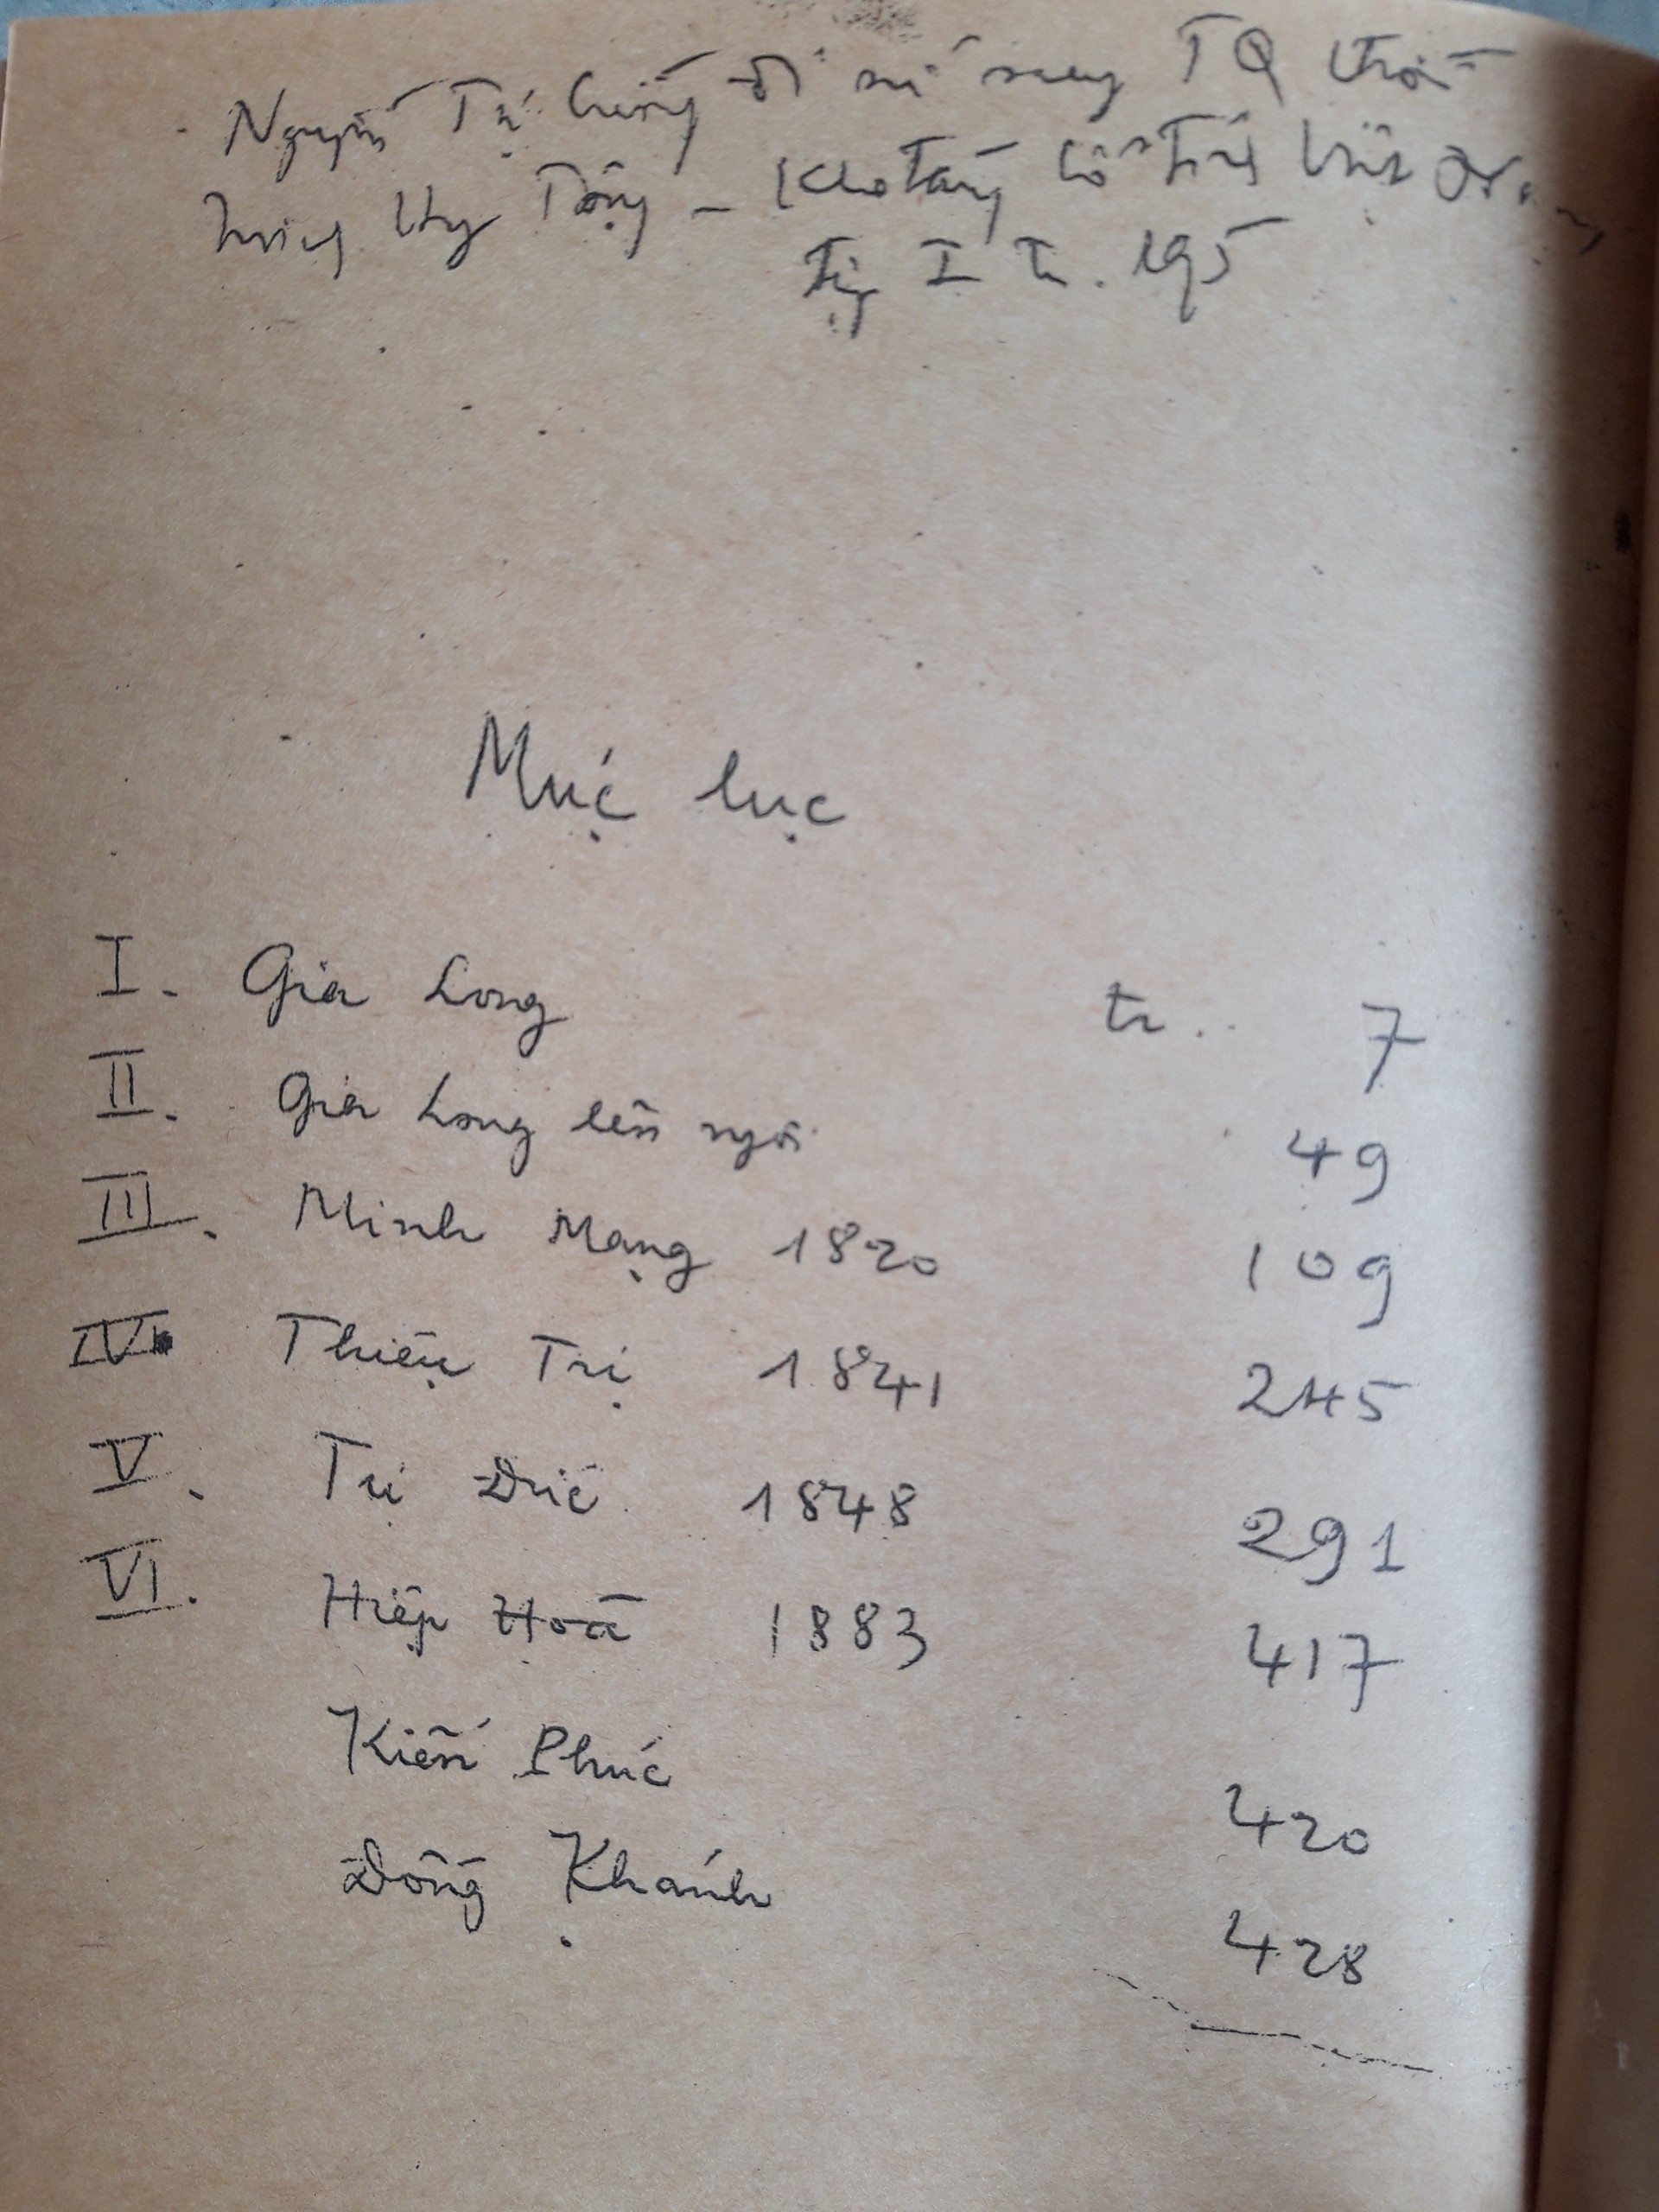 Nguyễn Tự Cường đi sứ sang TQ thời
Hy Tông - Kho tàng cổ tích Việt
Tập I Tr. 195
Mục lục
I. Gia Long tr. 7
II. Gia Long lên ngôi 49
III. Minh Mạng 1820 109
IV. Thiệu Trị 1841 245
V. Tự Đức 1848 291
VI. Hiệp Hoà 1883 417
Kiến Phúc 420
Đồng Khánh 428